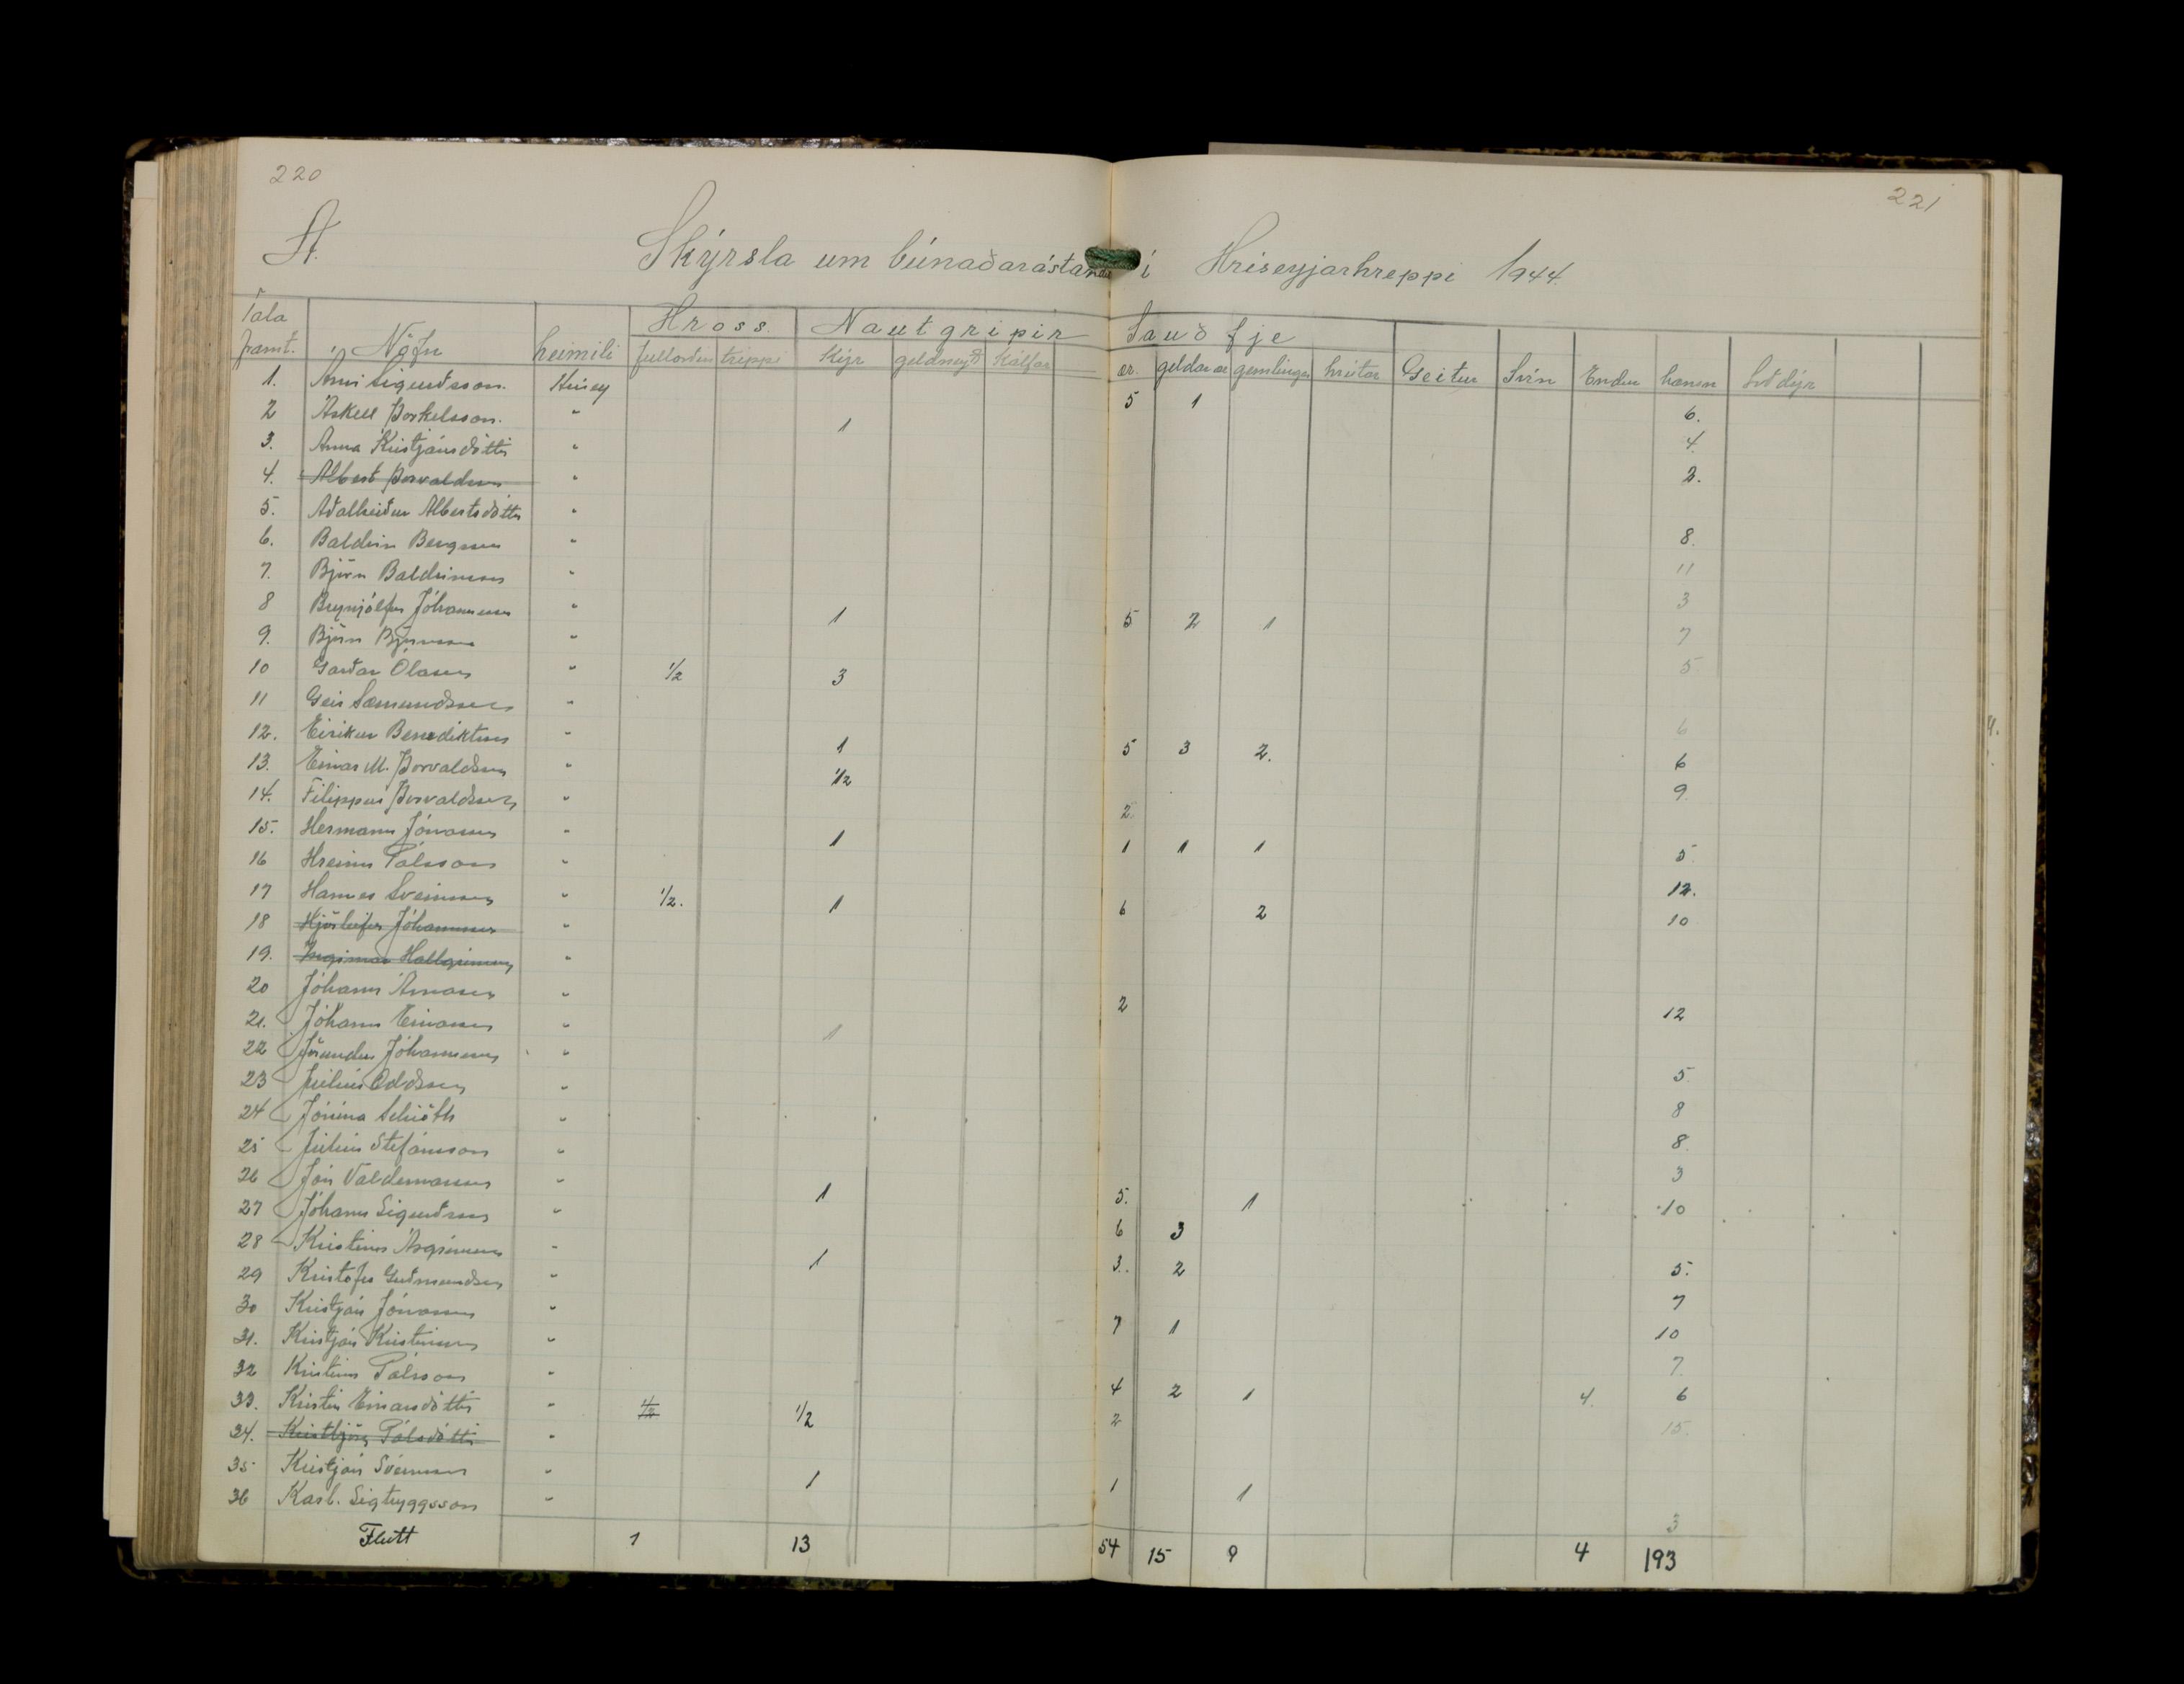 220
221
A.
Skýrsla um búnaðarástand í Hríseyjarhreppi 1944.
Tala framt. Nöfn heimili Hross. Nautgripir Sauðfje
fullorðin trippi Kýr geldneyti Kálfar ær. geldar ær gemlingar hrútar Geitur Svín Endur hænsn Loðdýr
1. Árni Sigurðsson. Hrísey 5 1 6.
2 Áskell Þorkelsson. " 1 4.
3. Anna Kristjánsdóttir " 2.
4. Albert Þorvaldsson "
5. Aðalheiður Albertsdóttir " 8.
6. Baldvin Bergsson " 11
7. Björn Baldvinsson " 3
8 Brynjólfur Jóhannesson " 1 5 2 1 7
9. Björn Björnsson " 5
10 Garðar Ólason " 1/2 3
11 Geir Sæmundsson " 6
12. Eiríkur Benediktsson " 1 5 3 2. 6
13. Einar M. Þorvaldsson " 1/2 9
14. Filippus Þorvaldsson " 2.
15. Hermann Jónasson " 1 1 1 1 5
16 Hreinn Pálsson " 12.
17 Hannes Sveinsson " 1/2. 1 6 2 10
18 Hjörleifur Jóhannsson "
19. Ingimar Hallgrímsson "
20 Jóhann Árnason " 2 12
21. Jóhann Einarsson " 1
22 Jörundur Jóhannesson " 5
23 Júlíus Oddsson " 8
24 Jónína Schiöth " 8.
25 Júlíus Stefánsson " 3
26 Jón Valdemarsson " 1 5. 1 10
27 Jóhann Sigurðsson " 6 3
28 Kristinn Ásgrímsson " 1 3. 2 5.
29 Kristófer Guðmundsson " 7
30 Kristján Jónasson " 7 1 10
31. Kristján Kristinsson " 7.
32 Kristinn Pálsson " 4 2 1 4. 6
33. Kristín Einarsdóttir " 1/2 1/2 2 15.
34. Kristbjörg Pálsdóttir "
35 Kristján " 1 1 1
36 Karl. Sigtryggsson " 3
Flutt 1 13 54 15 9 4 193
4.